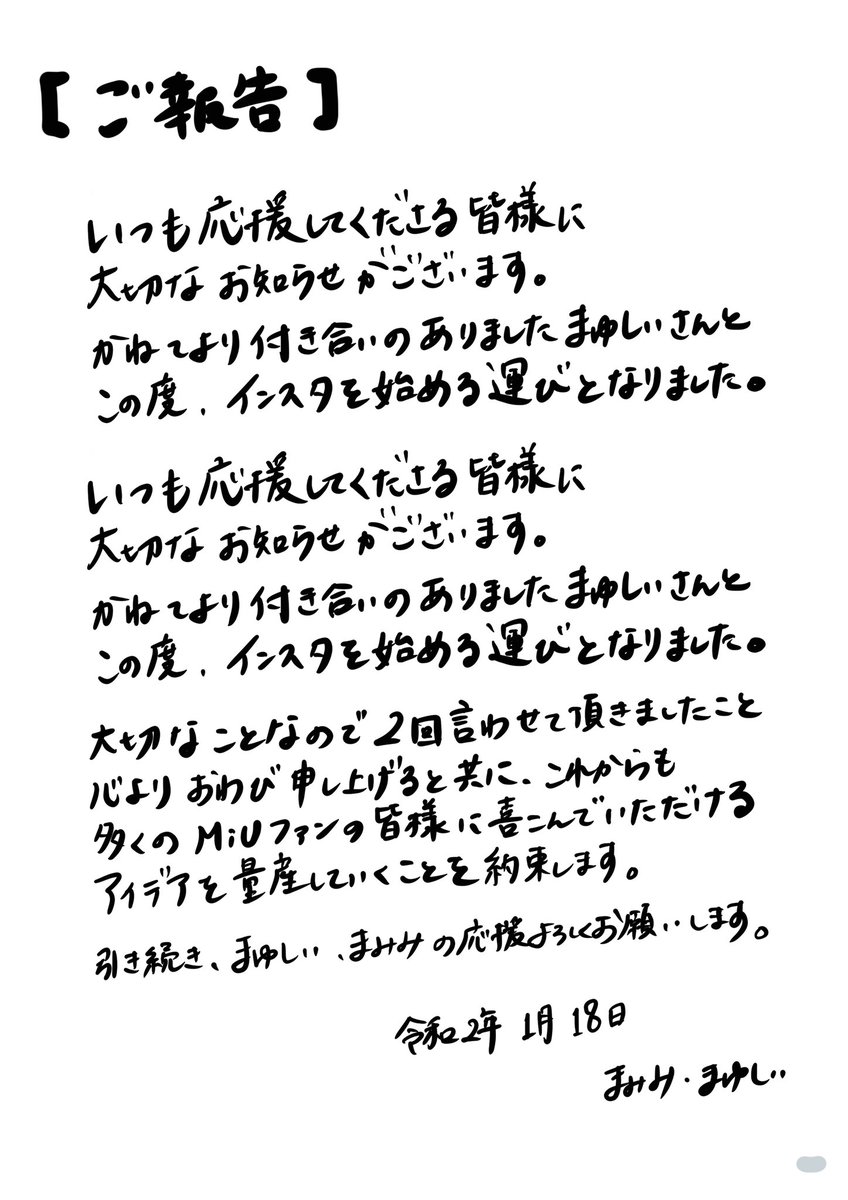 【ご報告】
いつも応援してくださる皆様に
大切なお知らせがございます。
かねてより付き合いのありましたまゆしぃさんと
この度、インスタを始める運びとなりました。
いつも応援してくださる皆様に
大切なお知らせがございます。
かねてより付き合いのありましたまゆしぃさんと
この度、インスタを始める運びとなりました。
大切なことなので2回言わせて頂きましたこと
心よりおわび申し上げると共に、これからも
多くのMiUファンの皆様に喜こんでいただける
アイデアを量産していくことを約束します。
引き続き、まゆしぃ、まみみの応援よろしくお願いします。
令和2年1月18日
まみみ・まゆしぃ